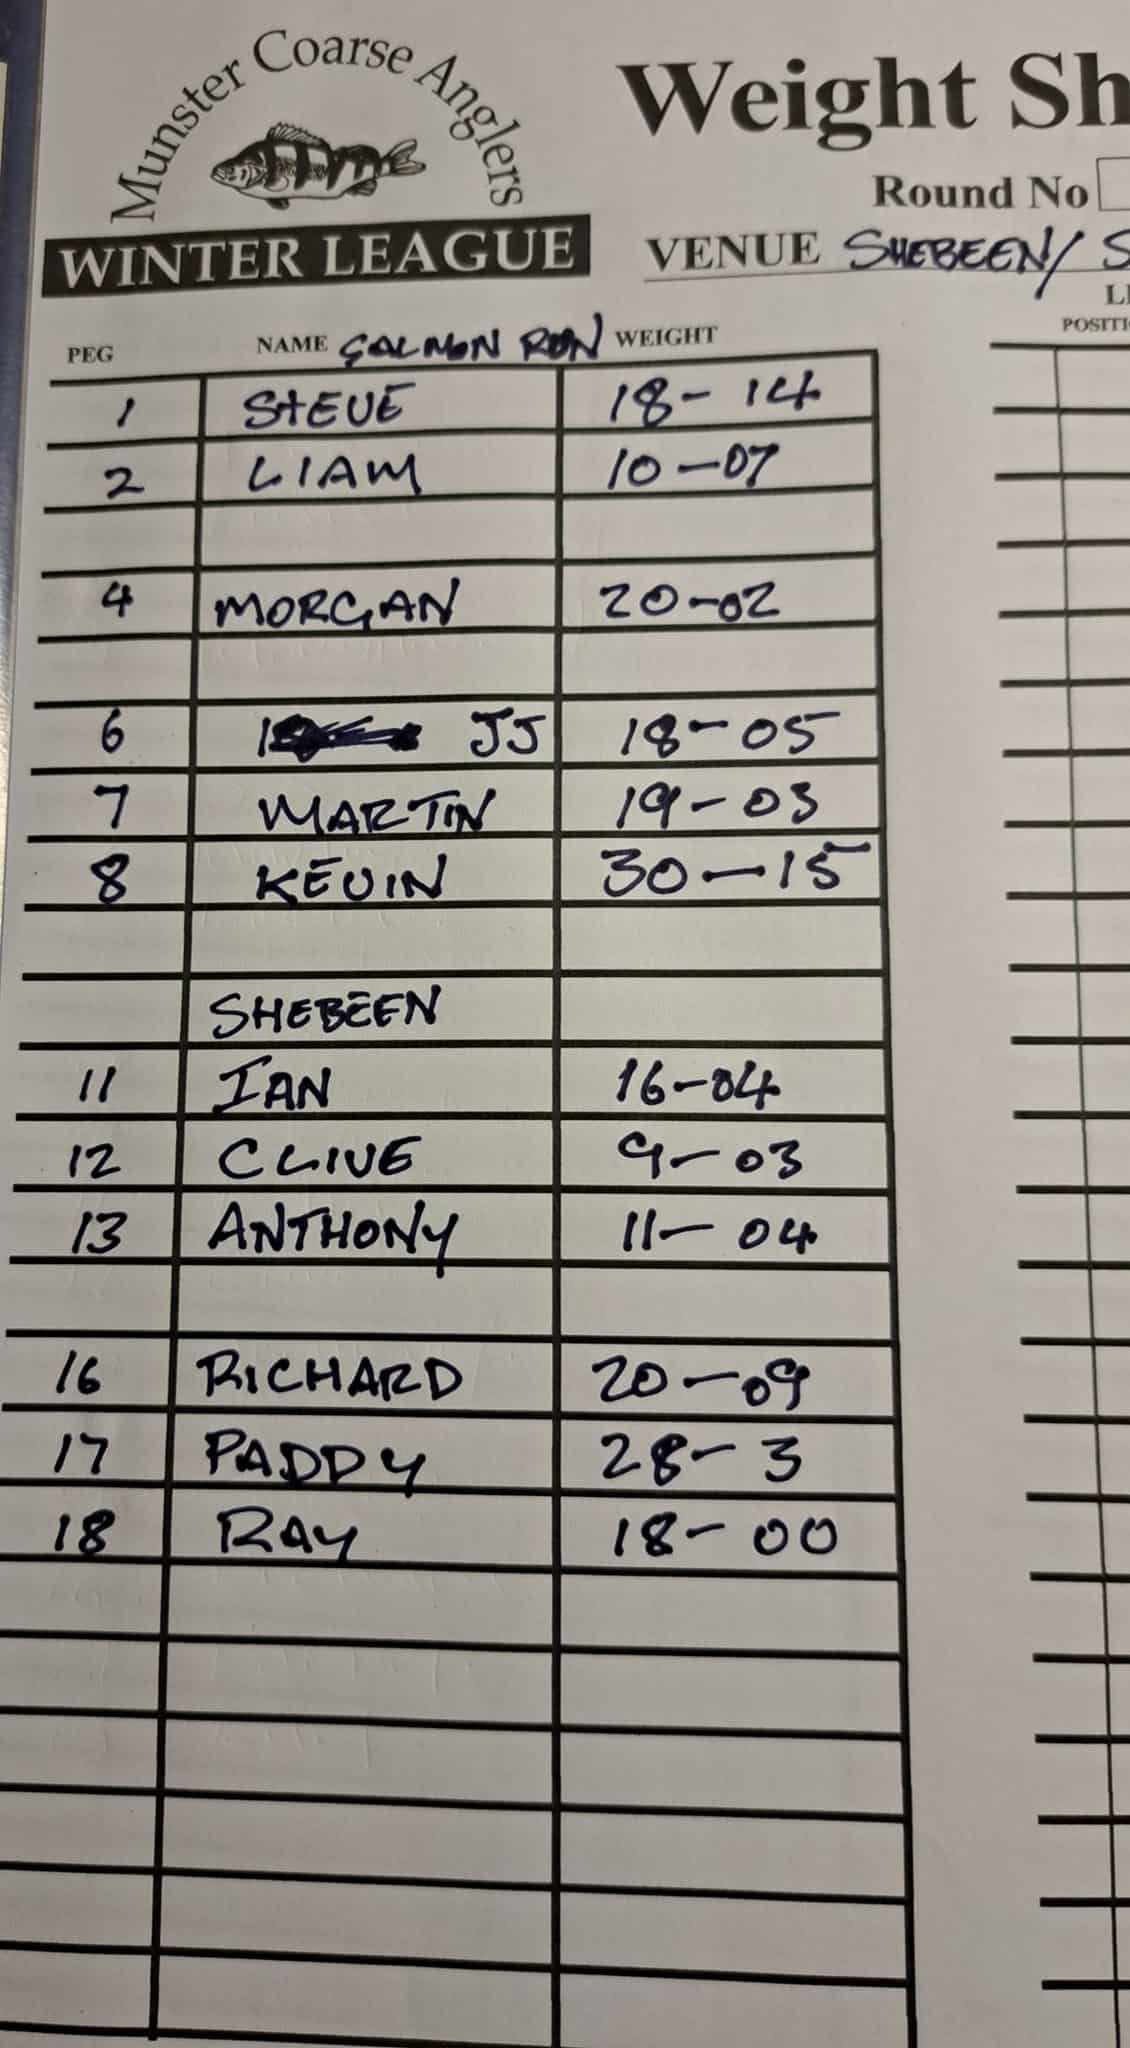 Munster Coarse Anglers
WINTER LEAGUE
Weight Sh
Round No
VENUE SHEBEEN/ S
PEG NAME SALMON RUN WEIGHT
POSITI
1 STEVE 18-14
2 LIAM 10-07
4 MORGAN 20-02
6 JJ 18-05
7 MARTIN 19-03
8 KEVIN 30-15
SHEBEEN
11 IAN 16-04
12 CLIVE 9-03
13 ANTHONY 11-04
16 RICHARD 20-09
17 PADDY 28-3
18 RAY 18-00